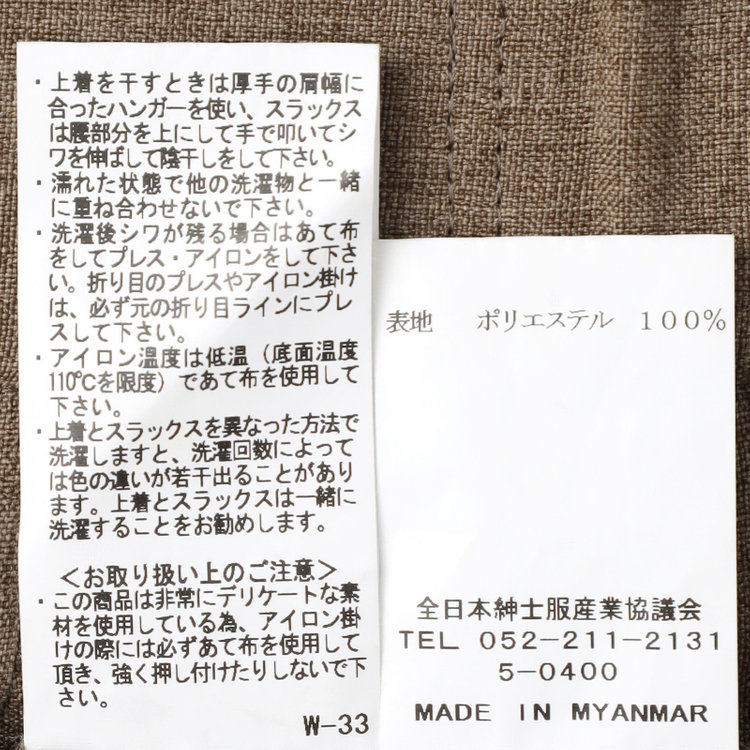 ・上着を干すときは厚手の肩幅に
合ったハンガーを使い、スラックス
は腰部分を上にして手で叩いてシ
ワを伸ばして陰干しをして下さい。
・濡れた状態で他の洗濯物と一緒
に重ね合わせないで下さい。
・洗濯後シワが残る場合はあて布
をしてプレス・アイロンをして下さ
い。折り目のプレスやアイロン掛け
は、必ず元の折り目ラインにプレ
スして下さい。
・アイロン温度は低温（底面温度
110℃を限度）であて布を使用して
下さい。
・上着とスラックスを異なった方法で
洗濯しますと、洗濯回数によって
は色の違いが若干出ることがあり
ます。上着とスラックスは一緒に
洗濯することをお勧めします。
＜お取り扱い上のご注意＞
・この商品は非常にデリケートな素
材を使用している為、アイロン掛
けの際には必ずあて布を使用して
頂き、強く押し付けたりしないで下
さい。
W-33
表地 ポリエステル 100%
全日本紳士服産業協議会
TEL 052-211-2131
5-0400
MADE IN MYANMAR